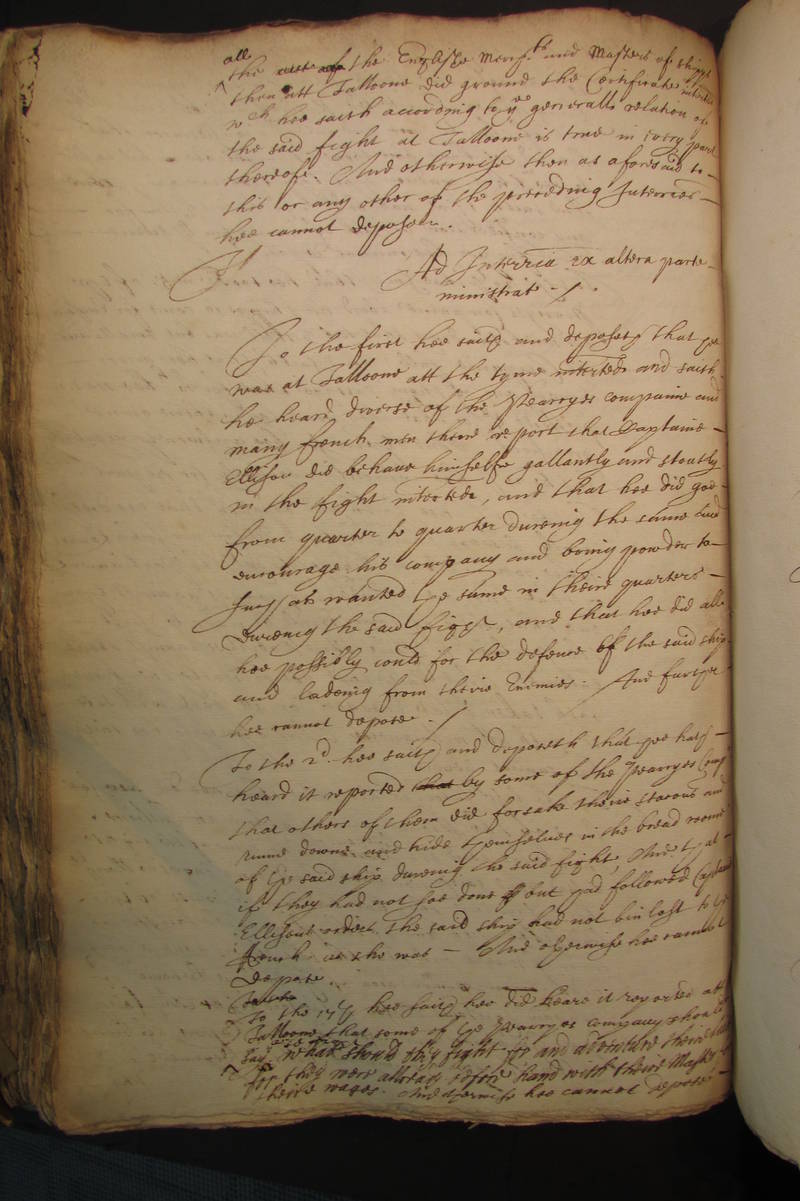 all
the of the English Merch:ts and Masters of shipps
then att Talloone did ground the Certificate
wch hee saith according to ye generall relation of
the said fight at Talloone is true in every part
thereof. And otherwise then as aforesaid to
this or any other of the preceeding Interries
hee cannot depose.
Ad Interria ex altera parte
ministrat.
To the first hee saith and deposeth that hee
was at Talloone att the tyme interrte and saith
he heard diverse of the Pearryes companie and
many french men there report that Captaine
Ellison did behave himselfe gallantly and stoutly
in the fight interrte, and that hee did goe
from quarter to quarter dureing the same and
encourage his company and bring powder to
such as wanted ye same in theire quarters
dureing the said fight, and that hee did all
hee possibly could for the defence of the said ship
and ladeing from theire Enemies. And further
hee cannot depose.
To the 2d. hee saith and deposeth that hee hath
heard it reported that by some of the Pearryes comp
that others of them did forsake theire stacons and
runne downe and hide themselves in the bread roome
of ye said ship dureing the said fight, And that
if they had not soe done but had followed Capt
Ellisons orders the said ship had not bin lost to ye
french as she was. And otherwise hee cannot
depose.
To the hee saith hee did heare it reported att
Talloone that some of ye Pearryes company should
say what should they fight for and adventure theire
for they were already before hand with theire Master
theire wages. And otherwise hee cannot depose